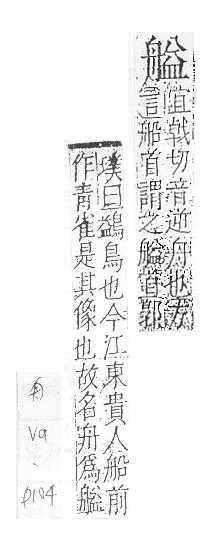 艗
宜戟切音逆舟也方
言船首謂之艗首郭
璞曰鷁鳥也今江東貴人船前
作靑雀是其像也故名舟爲艗
Va
p104